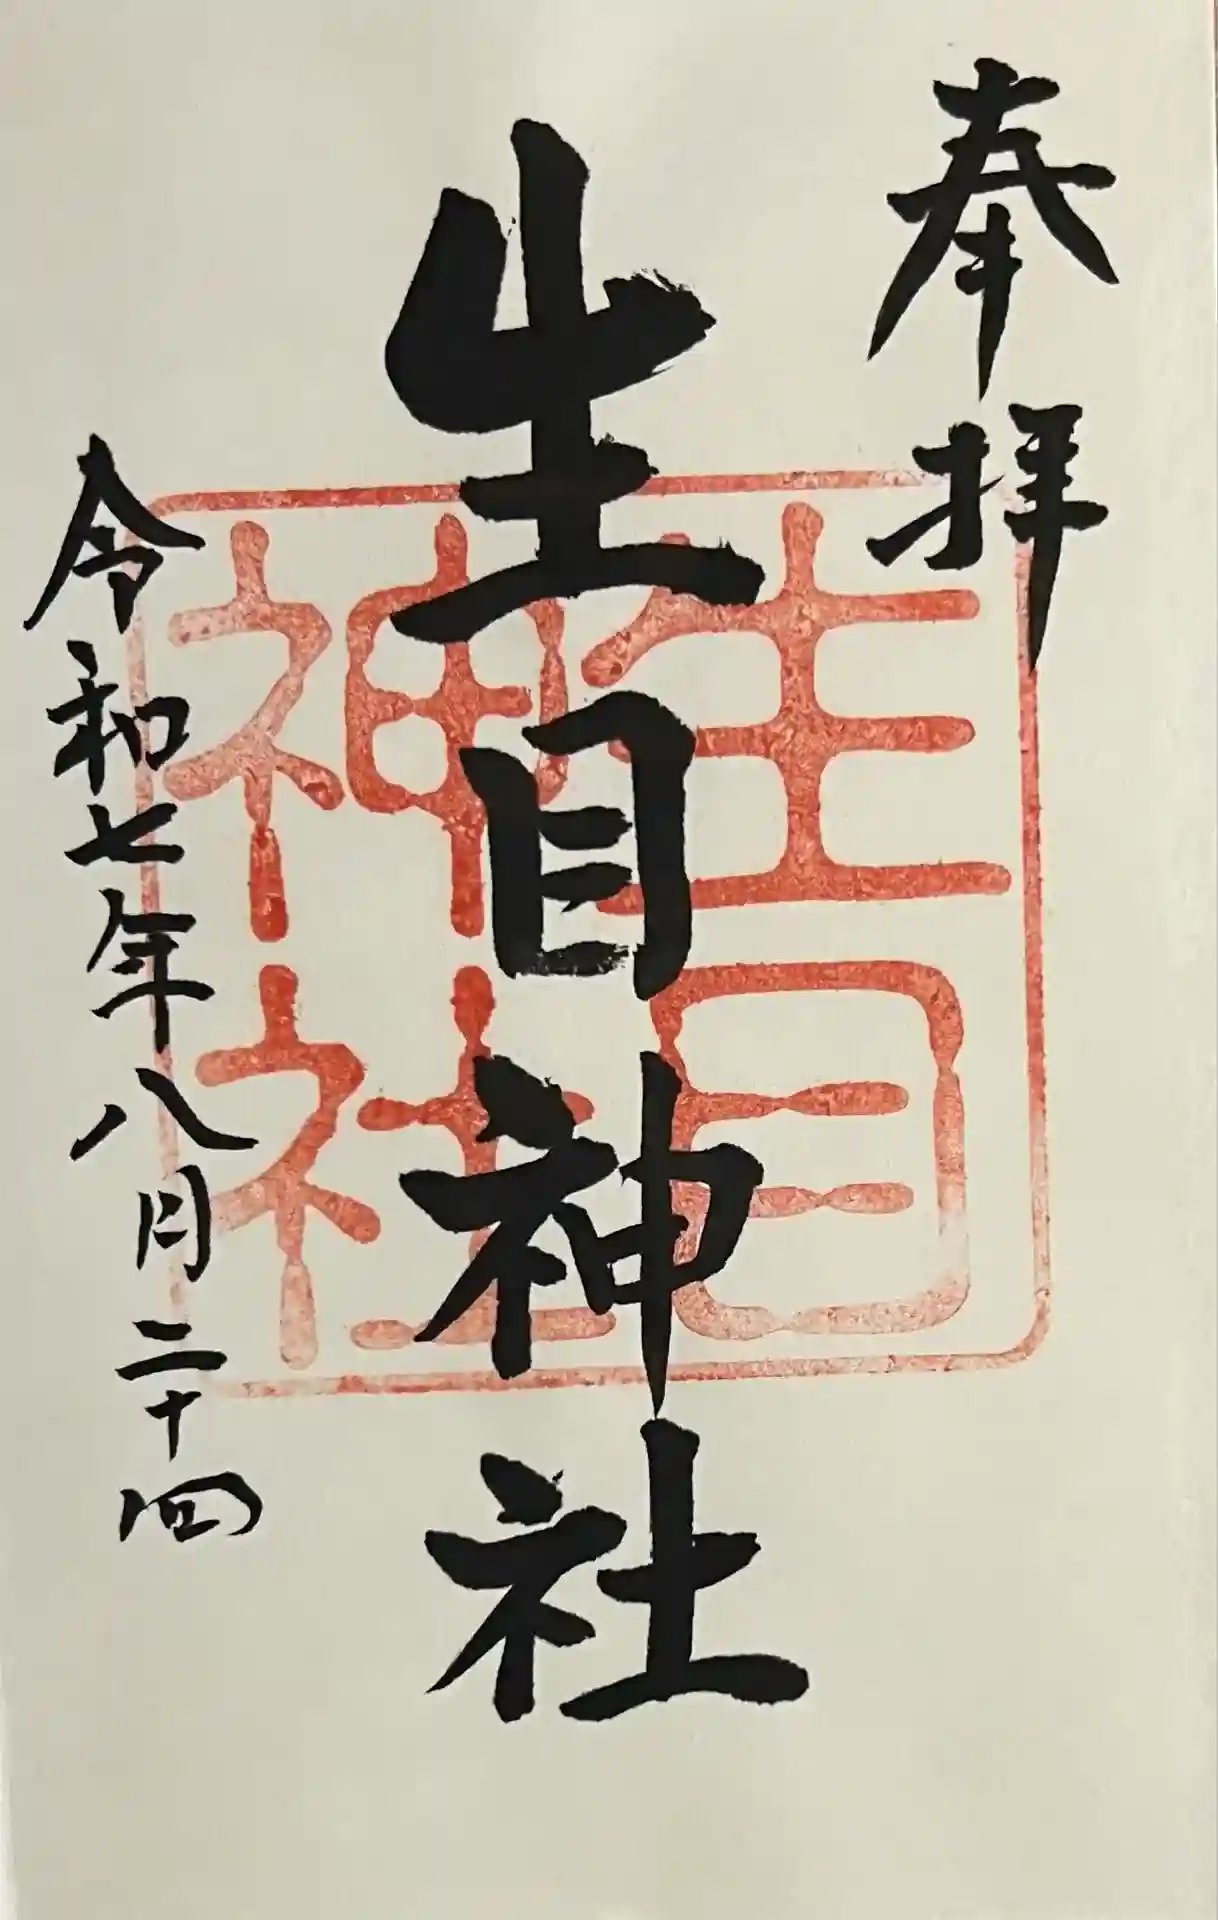 奉拝
生目神社
生目
神社
令和七年八月二十四